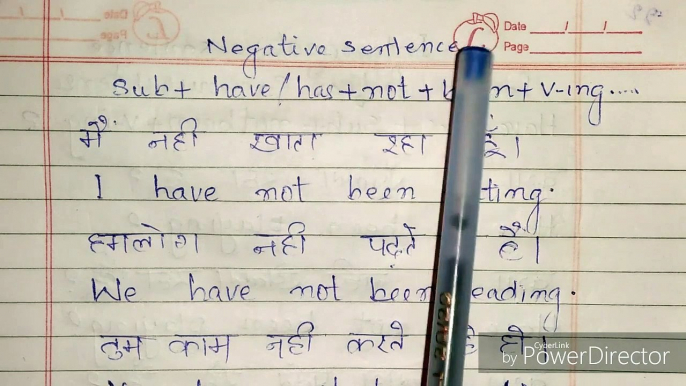 Date / /
Page
Negative sentence
Sub+ have/has+not+ + V-ing.....
मैं नही खाता रहा हूँ।
I have not been
हमलोग नही पढ़ते है।
We have not been
तुम काम नही करते
CyberLink
by PowerDirector